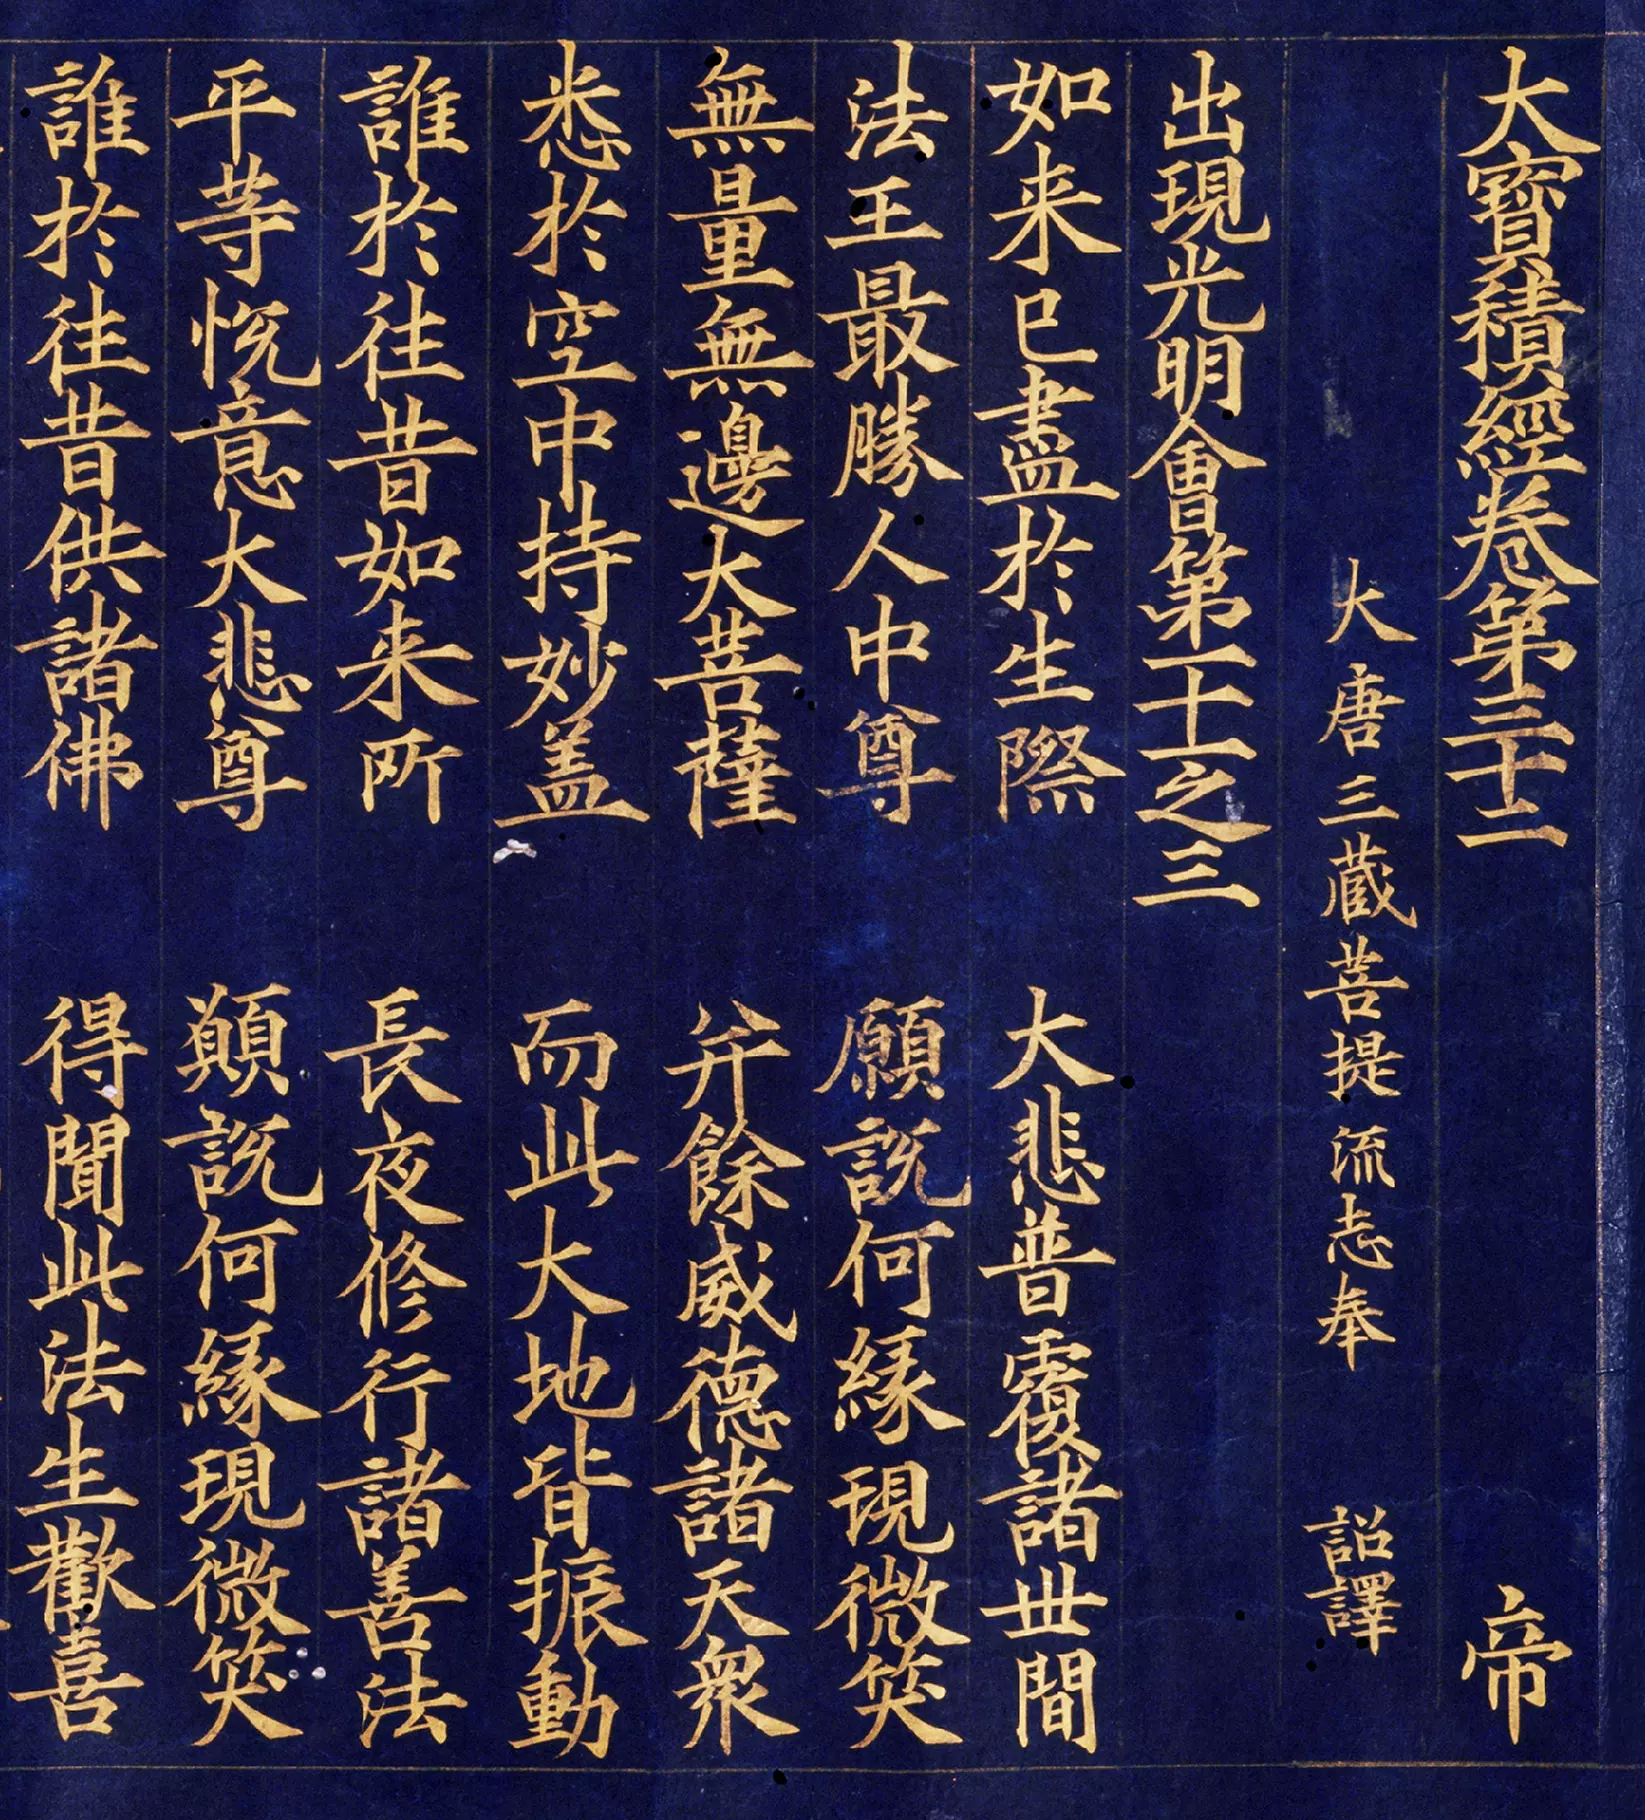 大寳積經卷第三十二 帝
大唐三蔵菩提流志奉 詔譯
出現光明會第十一之三
如来已盡於生際 大悲普覆諸世間
法王最勝人中尊 願説何縁現微笑
無量無邊大菩薩 并餘威德諸天衆
悉於空中持妙盖 而此大地皆振動
誰於往昔如来所 長夜修行諸善法
平等悅意大悲尊 願説何縁現微笑
誰於往昔供諸佛 得聞此法生歡喜